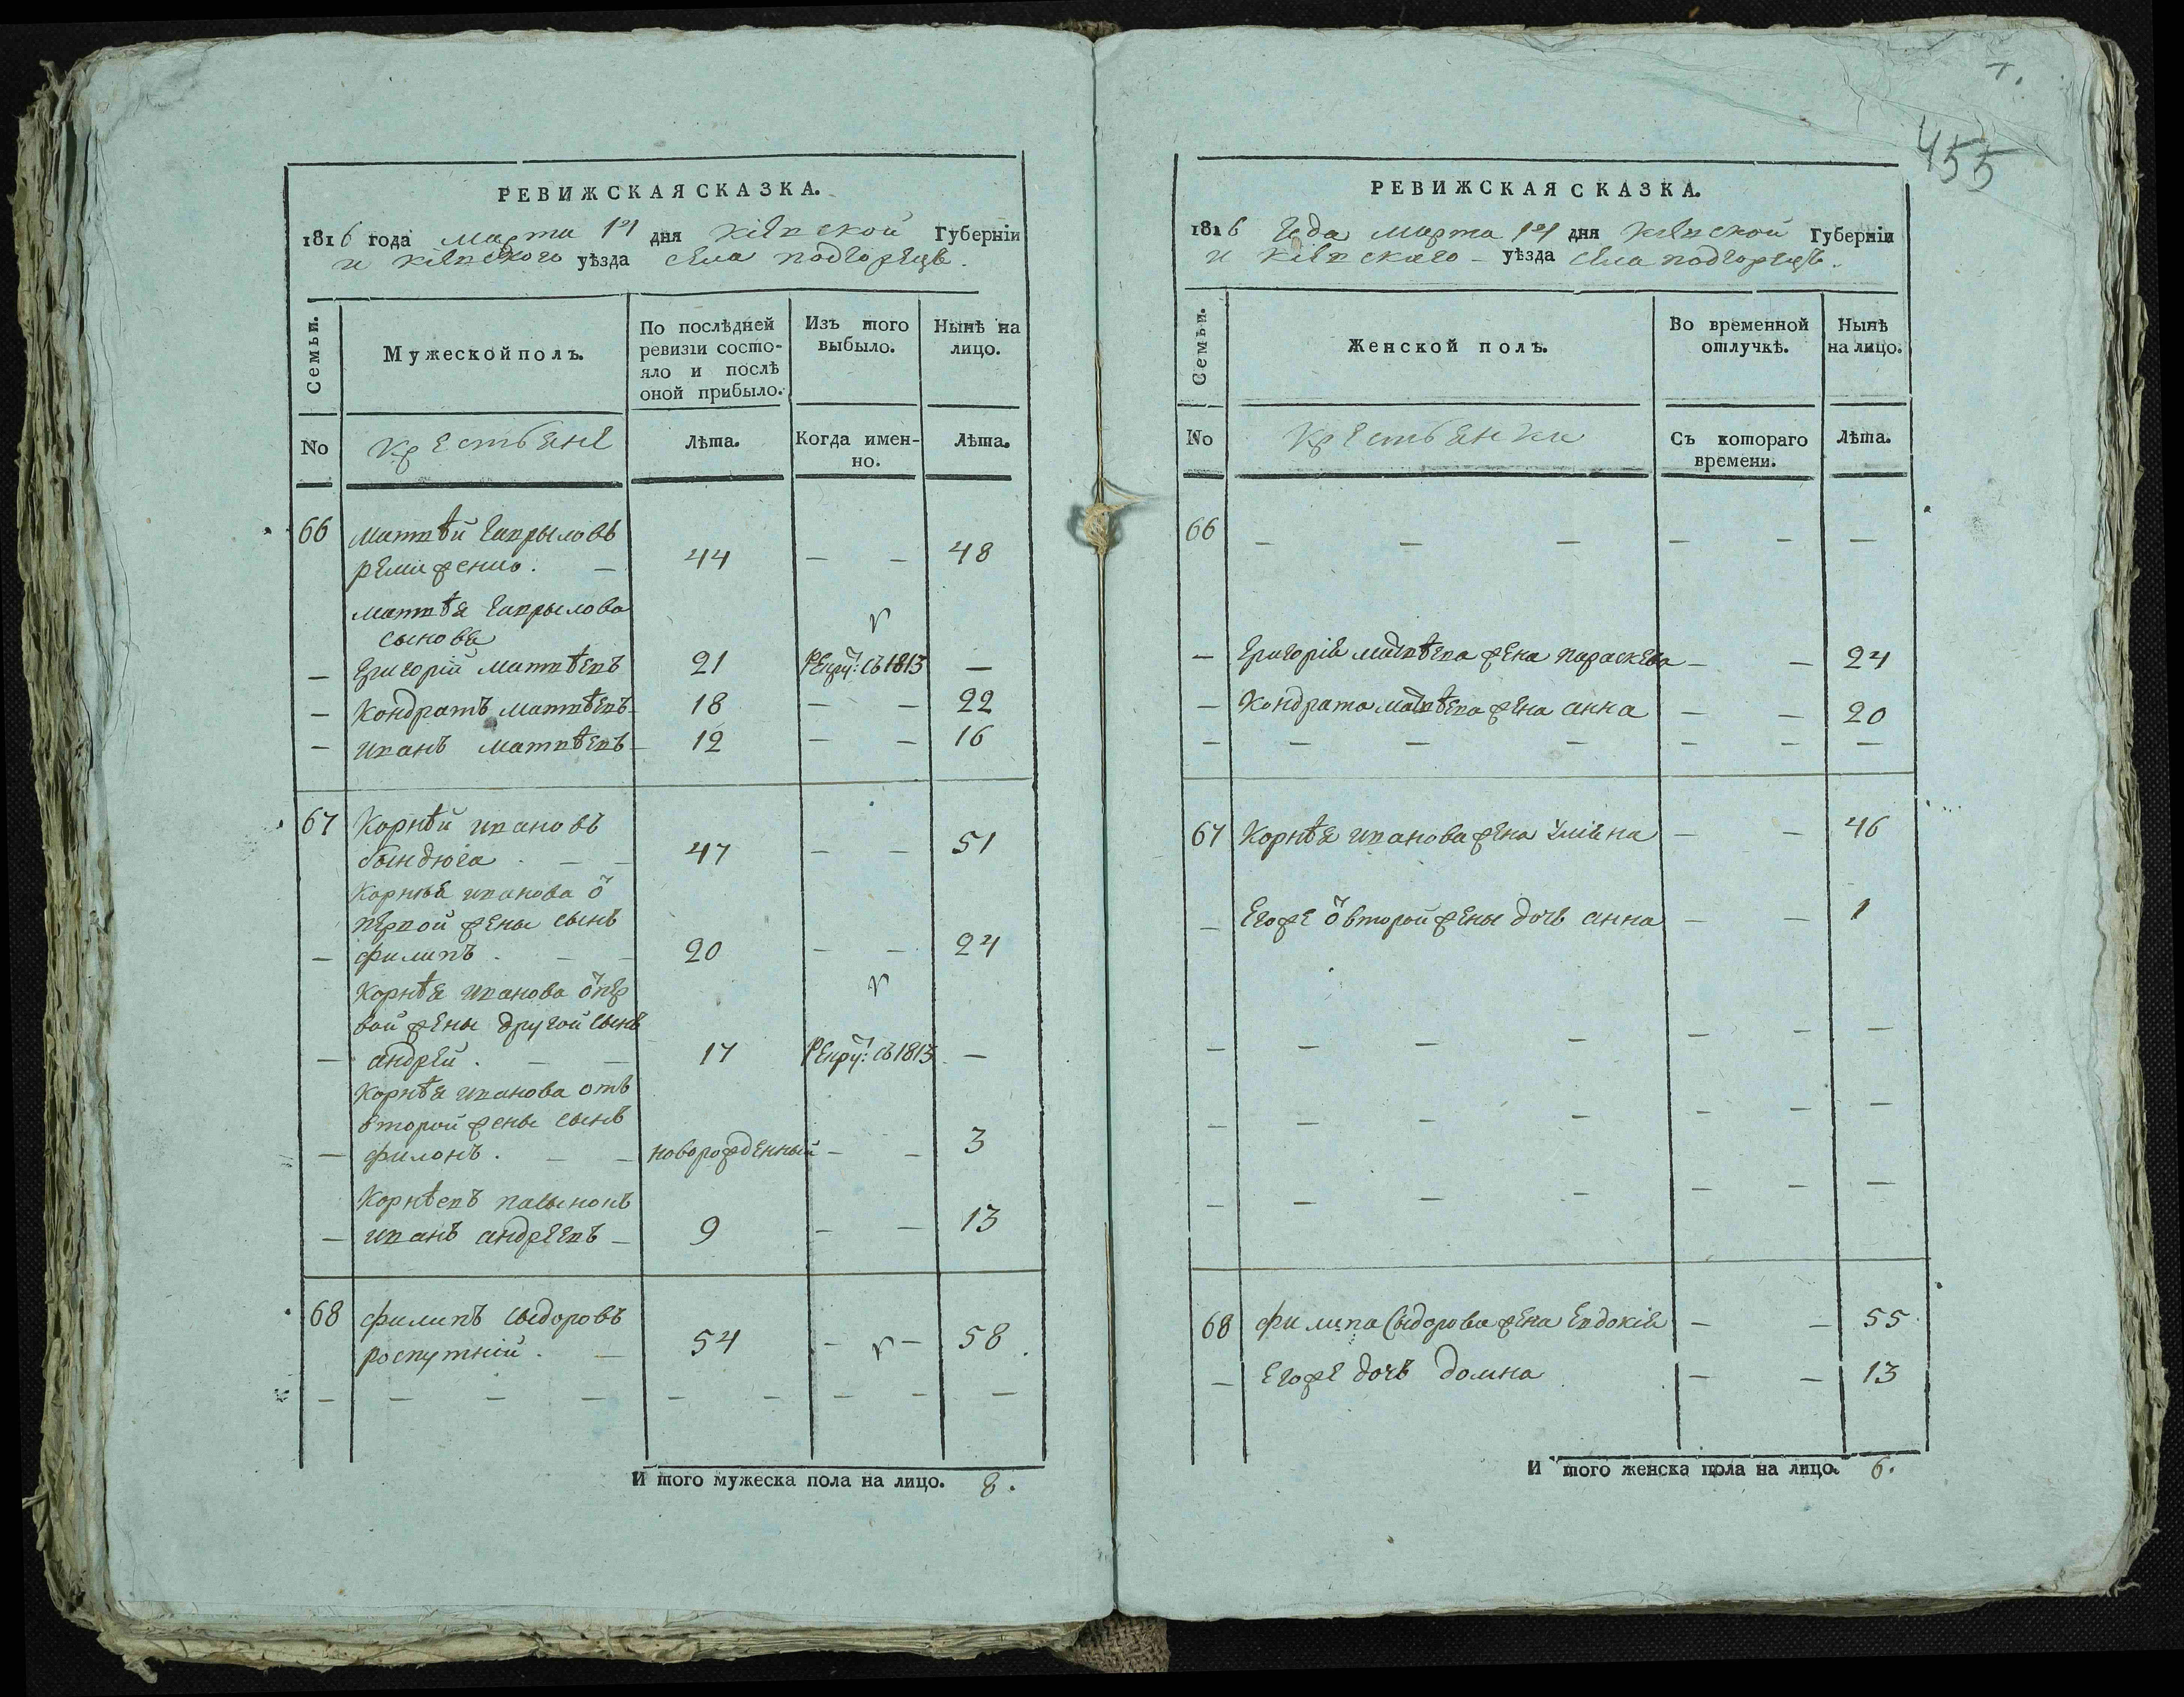 РЕВИЖСКАЯ СКАЗКА.
1816 года марта 1й дня Кіевской Губерніи
и Кіевского уѣзда села подгорецъ.
Семьи.
Мужеской полъ.
По послѣдней ревизіи состо-
яло и послѣ
оной прибыло.
Изъ того
выбыло.
Нынѣ на
лицо.
No
Крестьяне
Лѣта.
Когда имен-
но.
Лѣта.
66 матвѣй гавриловъ
44 — — 48
матвѣя гаврилова
сыновя
— григорій матвѣевъ 21 рекру: въ 1813 —
— Кондратъ матвѣевъ 18 — — 22
— иванъ матвѣевъ — 12 — — 16
67 Корнѣй ивановъ
бындюга . — — 47 — — 51
Корнѣя иванова ѿ
первой жены сынъ
— филипъ . — — 20 — — 24
Корнѣя иванова ѿ пер
вой жены другой сынъ
— андрей . — — 17 рекру: въ 1813 —
Корнѣя иванова отъ
второй жены сынъ
— филонъ . — — новорожденный — — 3
Корнѣевъ пасынокъ
— иванъ андреевъ — 9 — — 13
68 филипъ сыдоровъ
роспутній . — 54 — — 58 .
— — — — — — — — —
И того мужеска пола на лицо. 8.
7.
455
РЕВИЖСКАЯ СКАЗКА.
1816 года марта 1й дня Кіевской Губерніи
и Кіевскаго — уѣзда села подгорецъ.
Семьи.
Женской полъ.
Во временной
отлучкѣ.
Нынѣ
на лицо.
No
Крестьянки
Съ котораго
времени.
Лѣта.
66 — — — — — —
— григорія матвѣева жена параскева — — 24
— Кондрата матвѣева жена анна — — 20
— — — — — — —
67 Корнѣя иванова жена — — 46
— Егоже ѿ второй жены дочь анна — — 1
— — — — — — —
— — — — — — —
— — — — — — —
68 филипа сыдорова жена Евдокія — — 55
— Егоже дочь домна — — 13
И того женска пола на лицо. 6.